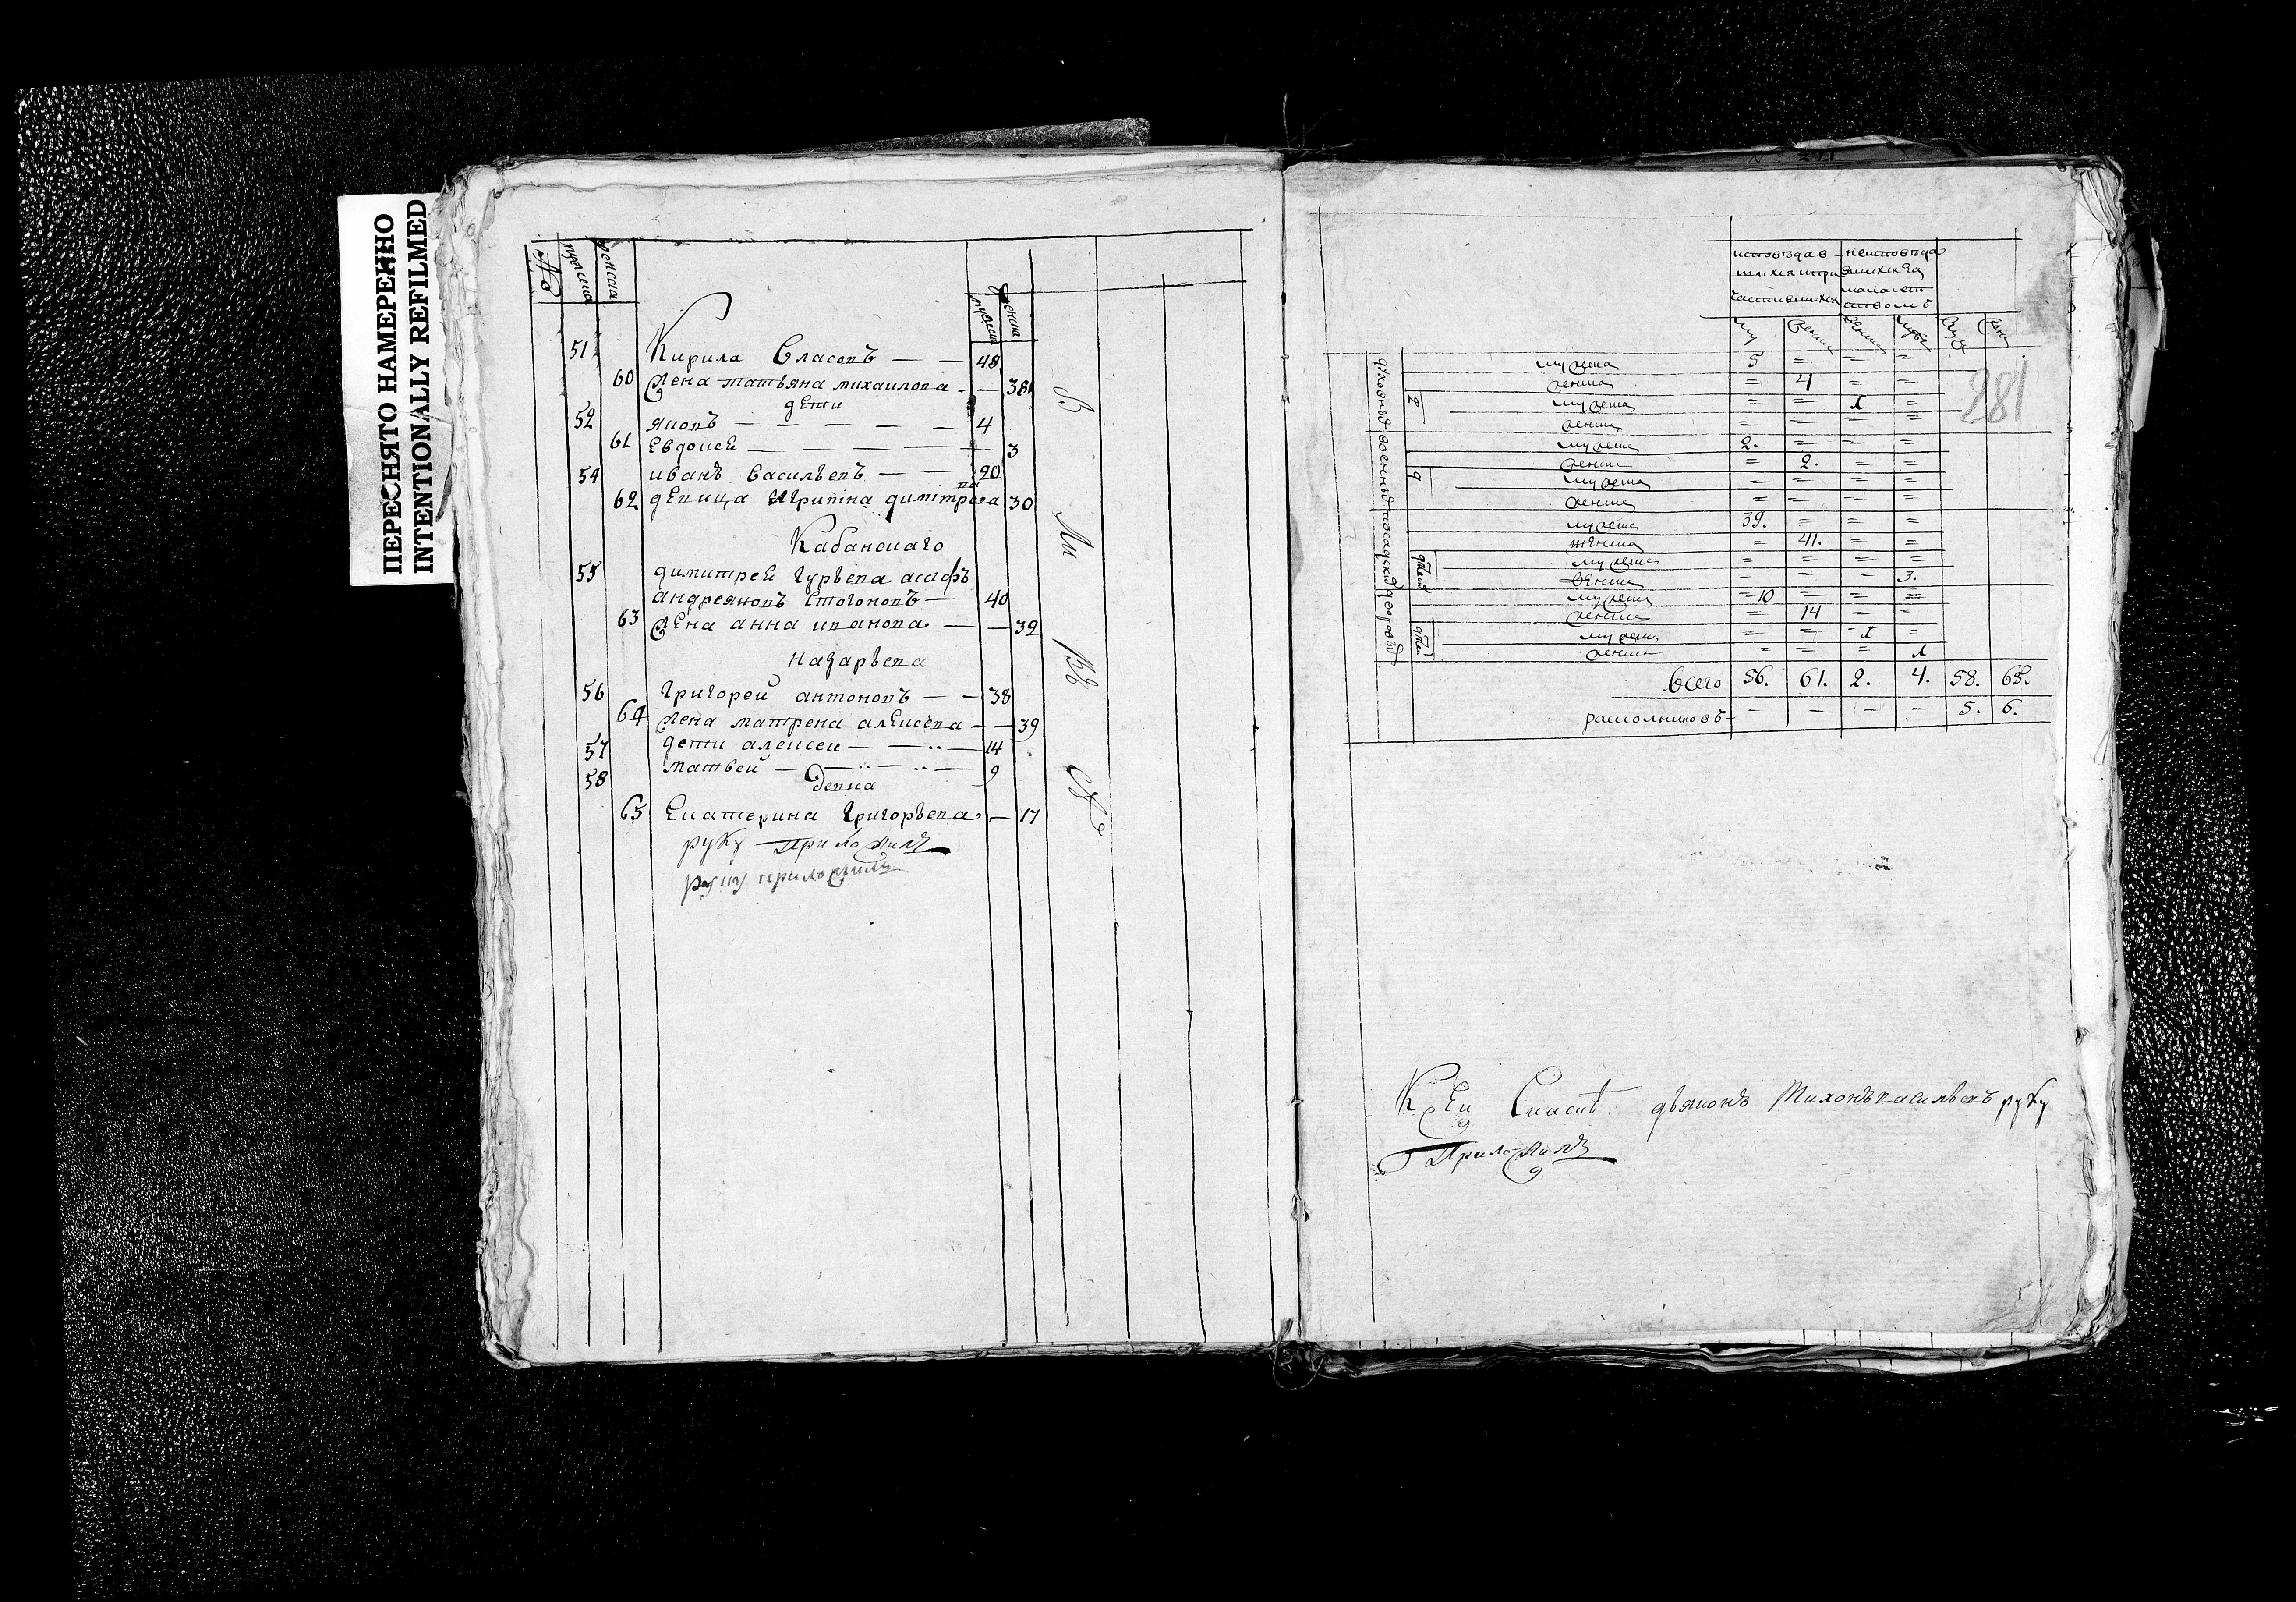 ПЕРЕСНЯТО НАМЕРЕННО
INTENTIONALLY REFILMED
№ мужеска женска
мужеска женска
51 Кирила Власовъ — — 48
60 Жена татьяна михаилова — — 38
дети
52 яковъ — — — — — 4
61 Евдокеѣ — — — — 3
54 иванъ Васильевъ — — 20
62 дѣвица Игрипина димитрова 30
Кабанскаго
55 димитреи Гурьева асафъ
андреяновъ Стогоновъ — 40
63 Жена анна иванова — — 39
назарьева
56 Григореи антоновъ — — 38
64 Жена матрена алексеева — — 39
57 дети алексеи — — — 14
58 матвеи — — — 9
Девка
65 Екатерина Григорьева — 17
руку Приложилъ
руку приложилъ
В Ли ВВ
исповѣдав- неисповѣда
шихся и при вшихся за
частившихся малолет
ством
му женска женска муже муж женс
281
духовныѣ военныѣ посадскиѣ дворовыѣ
мужеска 5 = = =
женска = 4 = =
мужеска = = 1 =
женска = = = =
мужеска 2. = = =
женска = 2. = =
мужеска = = = =
женска = = = =
мужеска 39. = = =
женска = 41. = =
дѣтей
мужеска = = = =
женска - - - 3.
мужеска 10 = = =
женска = 14 - -
дѣтей
мужеска = = 1 =
женска = = = 1
Всего 56. 61. 2. 4. 58. 65.
раскольниковъ — — — — — 5. 6.
Спаскѣ дьяконъ Тихонъ васильевъ руку
Приложилъ